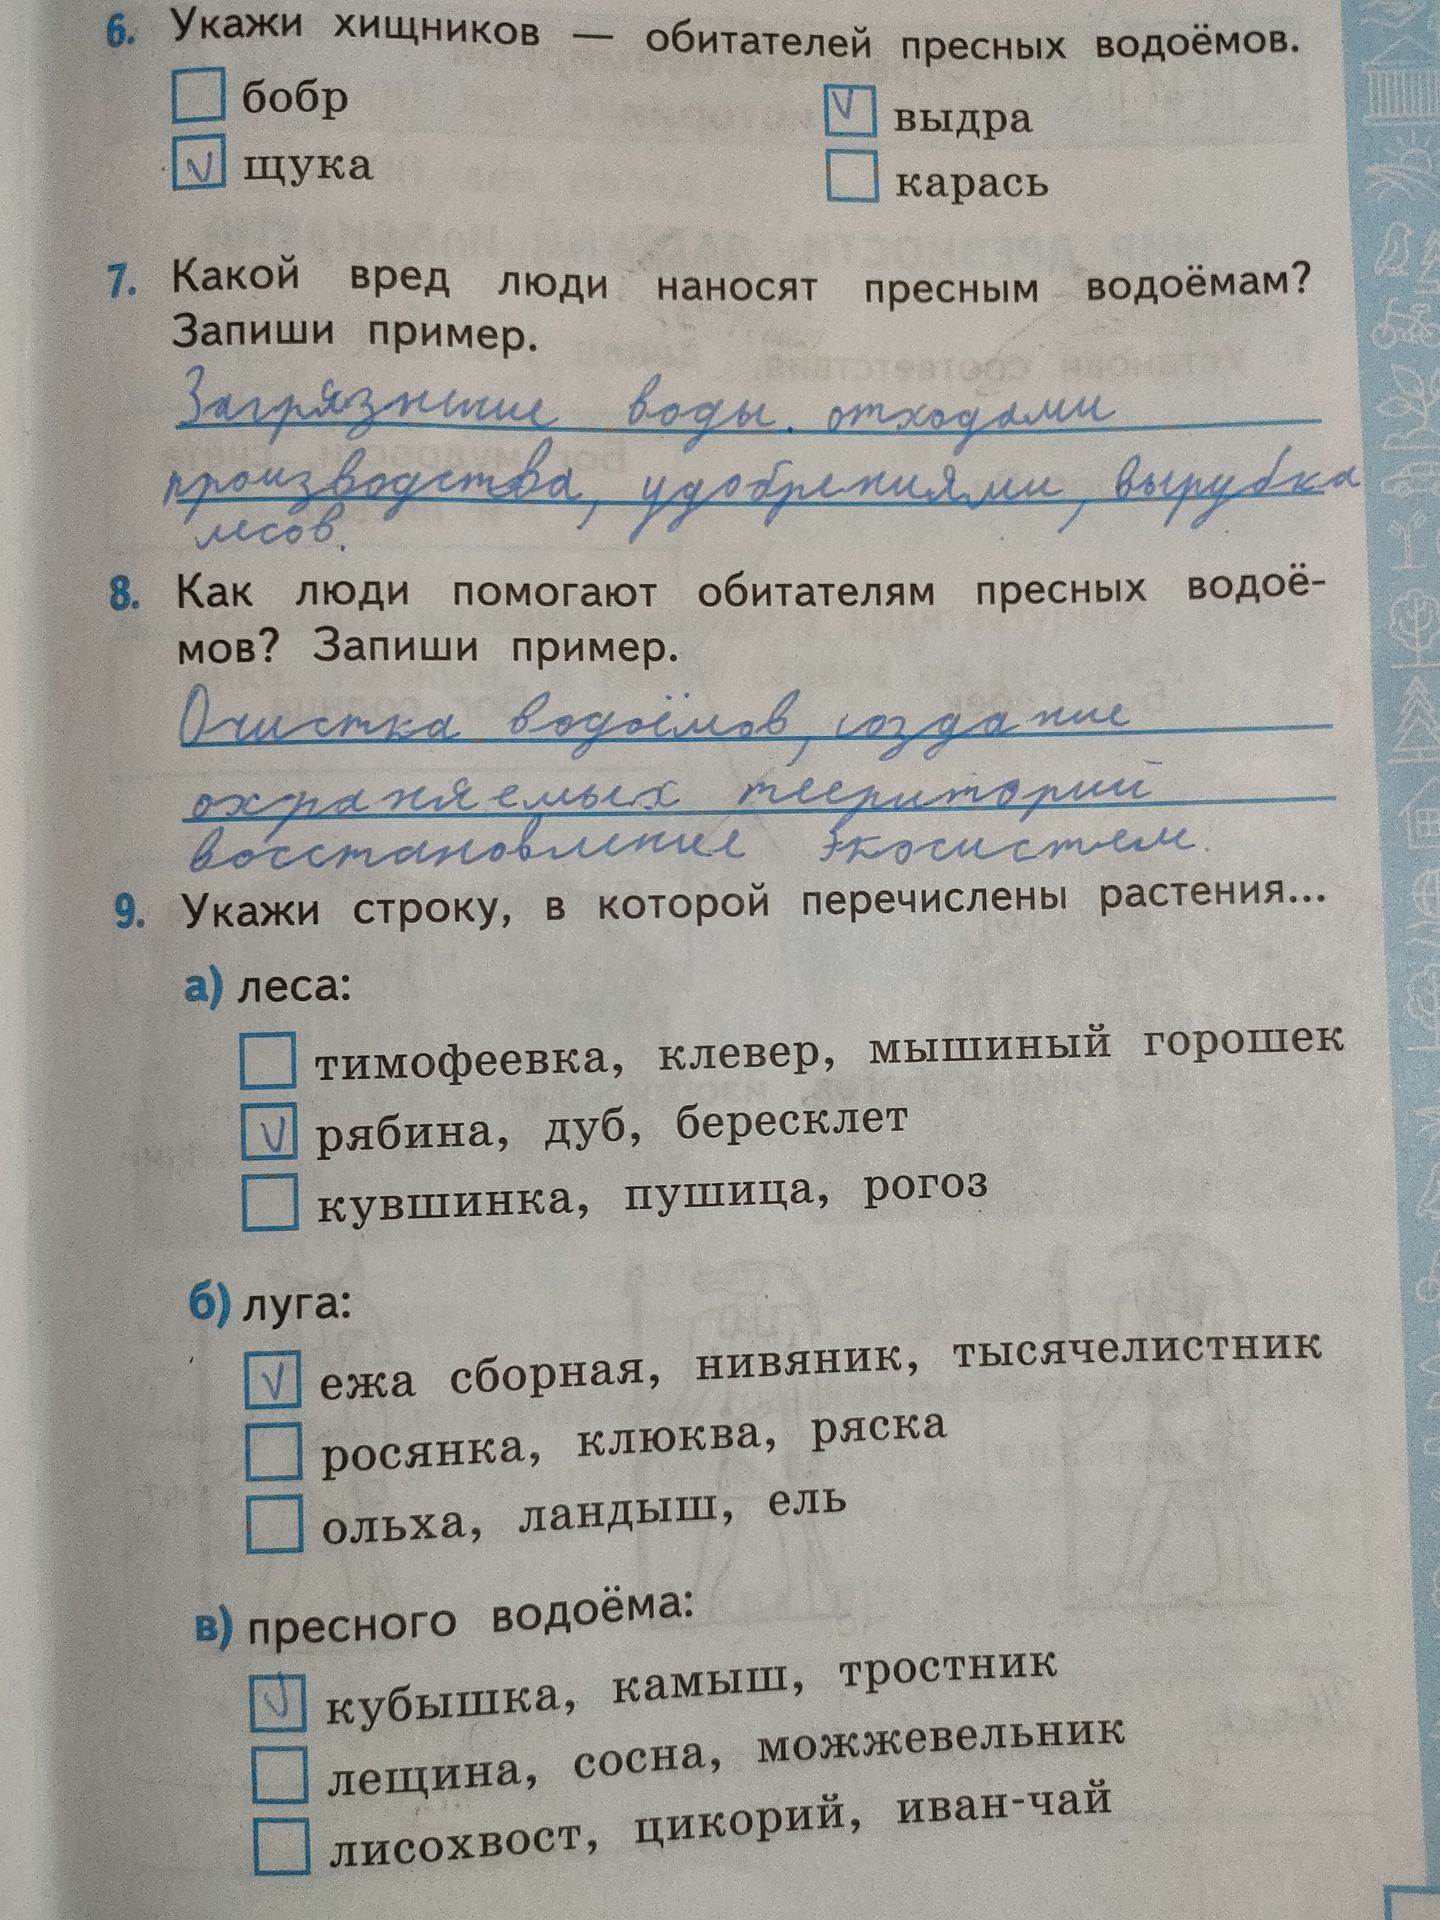 6. Укажи хищников — обитателей пресных водоёмов.
бобр
выдра
щука
карась
7. Какой вред люди наносят пресным водоёмам?
Запиши пример.
Загрязнение воды. отходами
производства, удобрениями, вырубка
лесов.
8. Как люди помогают обитателям пресных водоё-
мов? Запиши пример.
Очистка водоёмов, создание
охраняемых территорий
восстановление экосистем.
9. Укажи строку, в которой перечислены растения...
а) леса:
тимофеевка, клевер, мышиный горошек
рябина, дуб, бересклет
кувшинка, пушица, рогоз
б) луга:
ежа сборная, нивяник, тысячелистник
росянка, клюква, ряска
ольха, ландыш, ель
в) пресного водоёма:
кубышка, камыш, тростник
лещина, сосна, можжевельник
лисохвост, цикорий, иван-чай